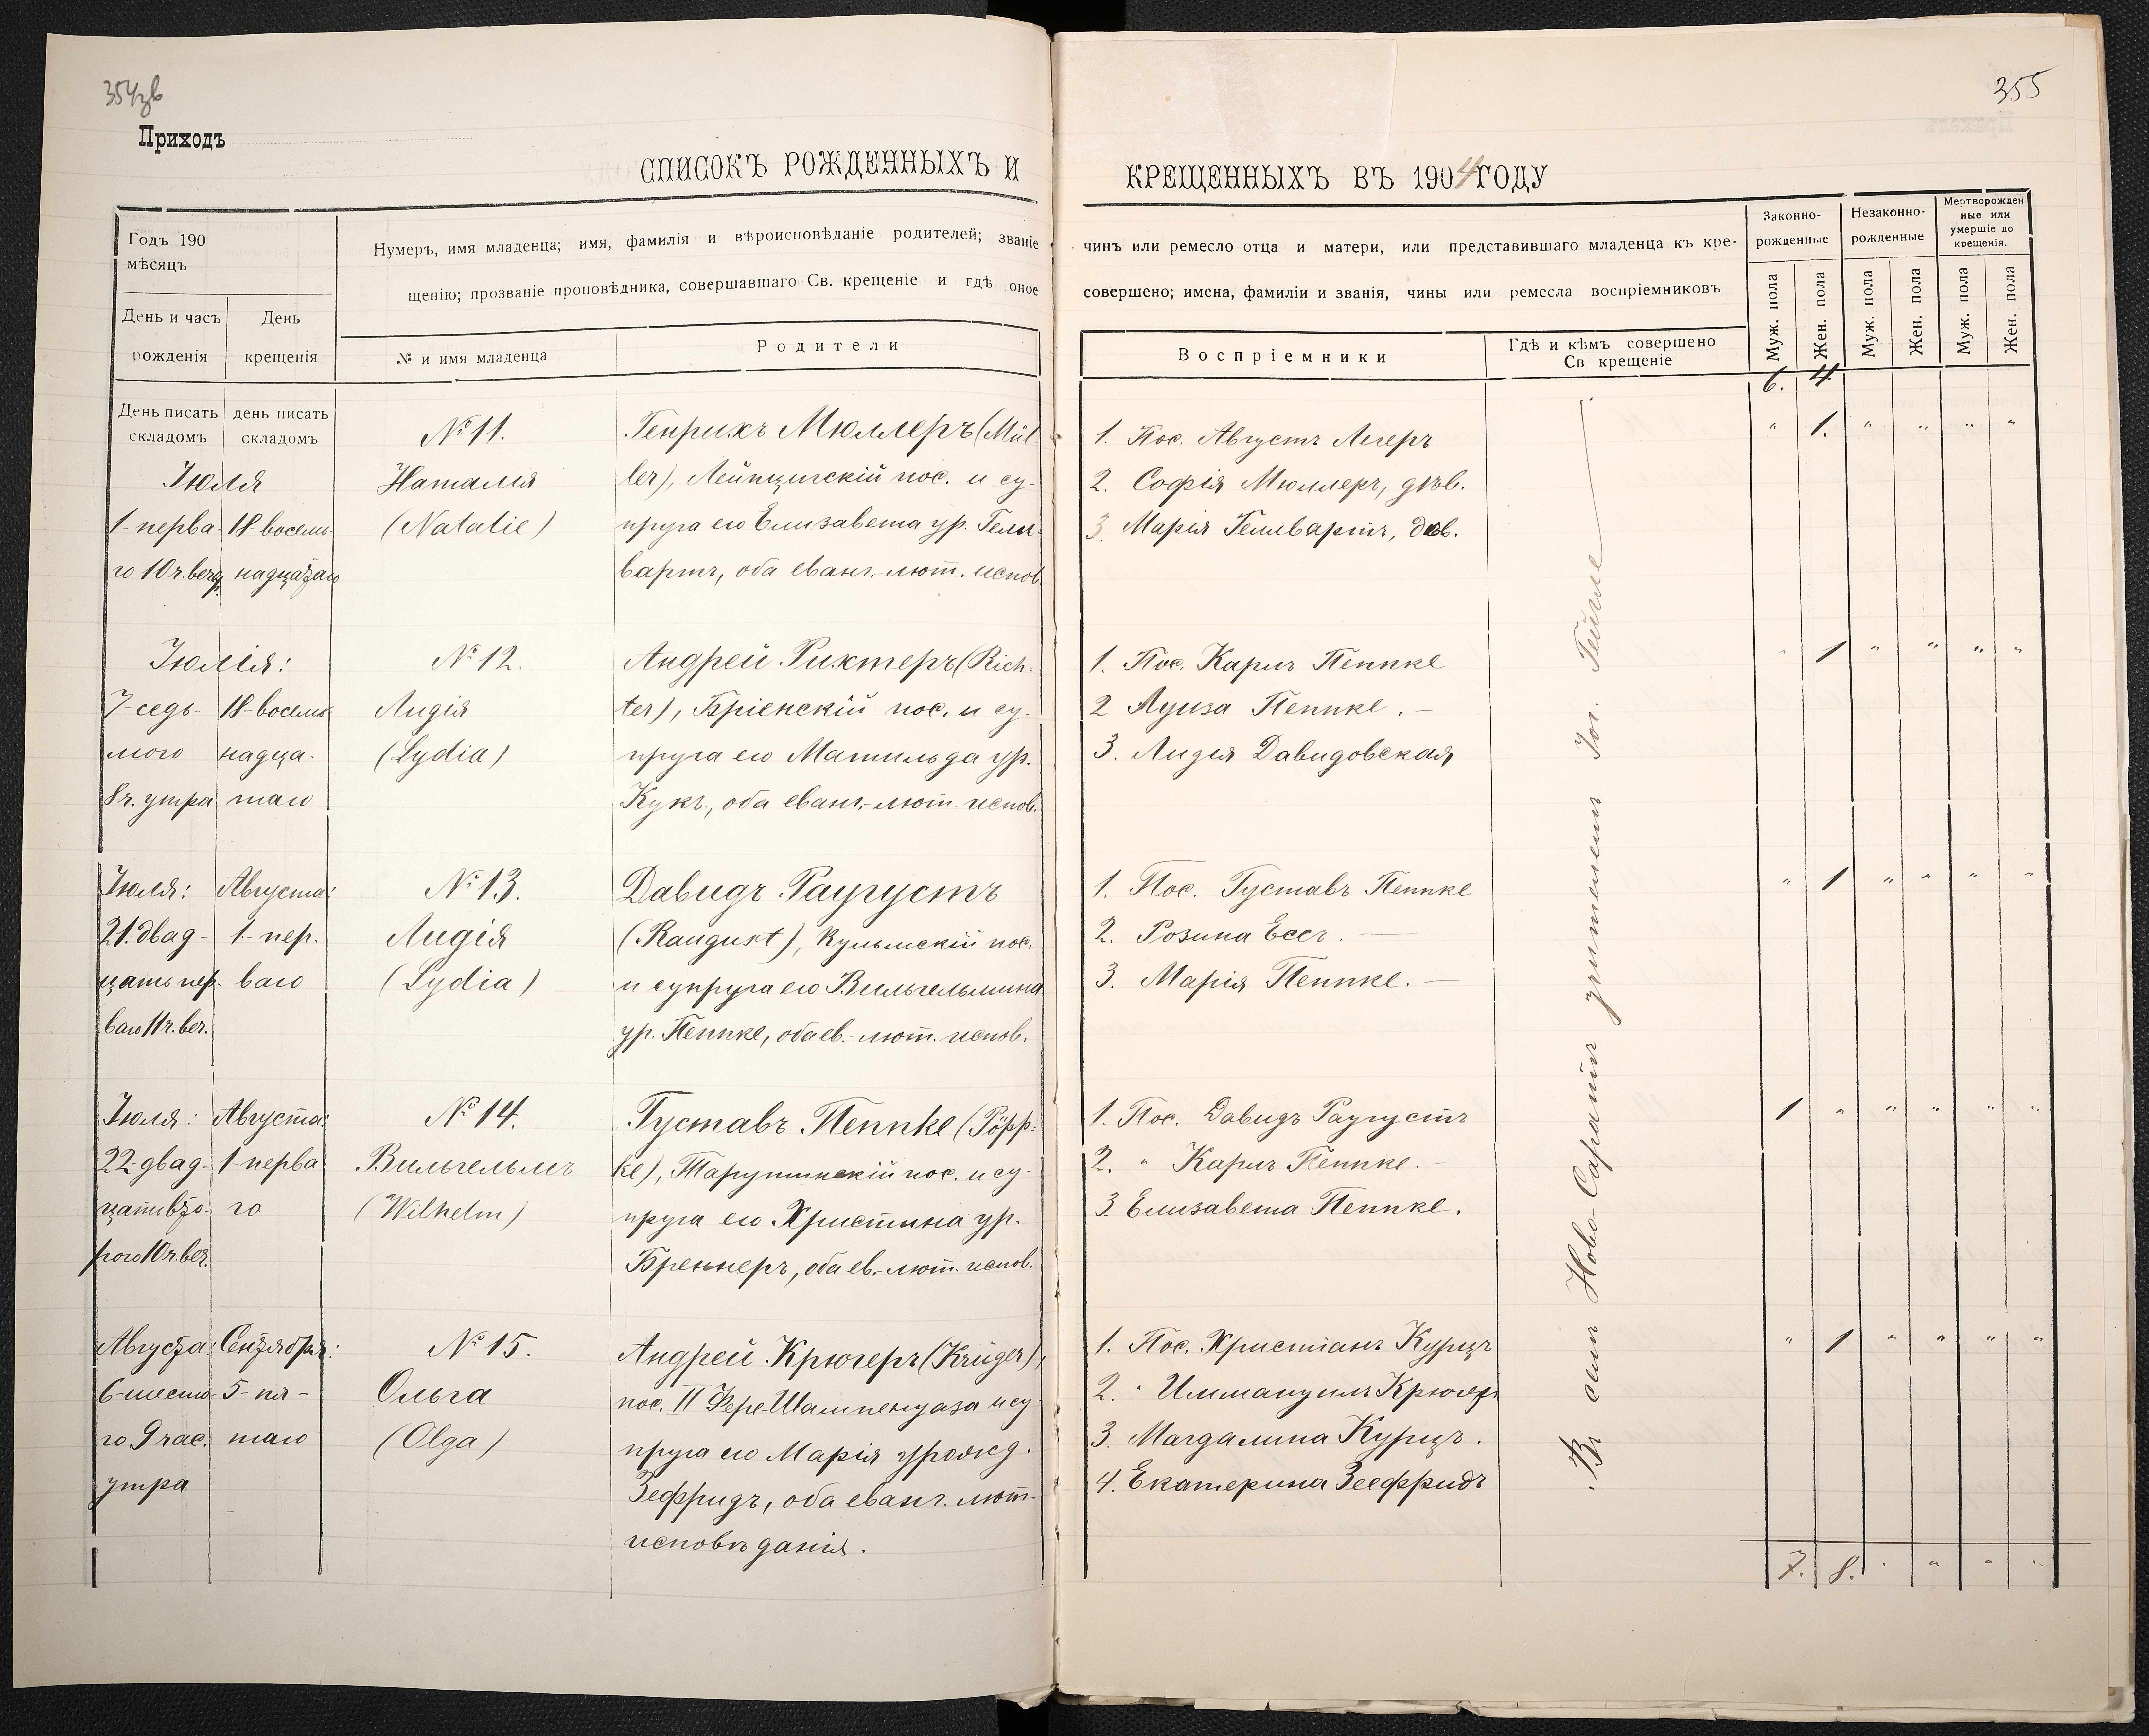 354зв
355
Приходъ
СПИСОКЪ РОЖДЕННЫХЪ И КРЕЩЕННЫХЪ ВЪ 1904 ГОДУ
Годъ 190
мѣсяцъ
День и часъ рожденія
День крещенія
Нумеръ, имя младенца; имя, фамилія и вѣроисповѣданіе родителей; званіе чинъ или ремесло отца и матери, или представившаго младенца къ кре-
щенію; прозваніе проповѣдника, совершавшаго Св. крещеніе и гдѣ оное совершено; имена, фамиліи и званія, чины или ремесла воспріемниковъ
№ и имя младенца
Родители
Воспріемники
Гдѣ и кѣмъ совершено
Св. крещеніе
Законно-
рожденные
Незаконно-
рожденные
Мертворожден
ные или
умершіе до
крещенія.
Муж. пола
Жен. пола
Муж. пола
Жен. пола
Муж. пола
Жен. пола
6. 4
День писать
складомъ
день писать
складомъ
Іюля
1-перва-
го 10ч. веч.
18-восем-
надцатаго
№ 11.
Наталія
(Natalie)
Генрихъ Мюллеръ (Mül-
ler), Лейпцигскій пос. и су-
пруга его Елизавета ур. Гелл-
вартъ, оба еванг.-лют. испов.
1. Пос. Августъ Легеръ
2. Софія Мюллеръ, дѣв.
3. Марія Геллвартъ, дѣв.
" 1. " " " "
Іюлія:
7-седь-
мого
8ч. утра
18-восем-
надца-
таго
№ 12.
Лидія
(Lydia)
Андрей Рихтеръ (Rich-
ter), Бріенскій пос. и су-
пруга его Матильда ур.
Кукъ, оба еванг.-лют. испов.
1. Пос. Карлъ Пеппке
2 Луиза Пеппке. —
3. Лидія Давидовская
" 1 " " " "
Іюля:
21. двад-
цать пер-
ваго 11ч. веч.
Августа:
1-пер-
ваго
№ 13.
Лидія
(Lydia)
Давидъ Раугустъ
(Raugust), Кульмскій пос.
и супруга его Вильгельмина
ур. Пеппке, оба ев.-лют. испов.
1. Пос. Густавъ Пеппке
2. Розина Ессъ. —
3. Марія Пеппке. —
" 1 " " " "
Іюля:
22-двад-
цативто-
рого 10ч. веч.
Августа:
1-перва-
го
№ 14.
Вильгельмъ
(Wilhelm)
Густавъ Пеппке (Pöpp-
ke), Тарутинскій пос. и су-
пруга его Христина ур.
Бреннеръ, оба ев.-лют. испов.
1. Пос. Давидъ Раугустъ
2. " Карлъ Пеппке. —
3. Елизавета Пеппке.
1 " " " " "
Августа:
6-шесто-
го 9 час.
утра
Сентября:
5-пя-
таго
№ 15.
Ольга
(Olga)
Андрей Крюгеръ (Krüger),
пос. II Фере-Шампенуаза и су-
пруга его Марія урожд.
Зефридъ, оба еванг. лют.
исповѣданія.
1. Пос. Христіанъ Курцъ
2. " Иммануилъ Крюгеръ
3. Магдалина Курцъ.
4. Екатерина Зеефридъ
" 1 " " " "
Въ сит. Ново Саратѣ учителемъ Іог. Гейгле
7. 8. " " " "